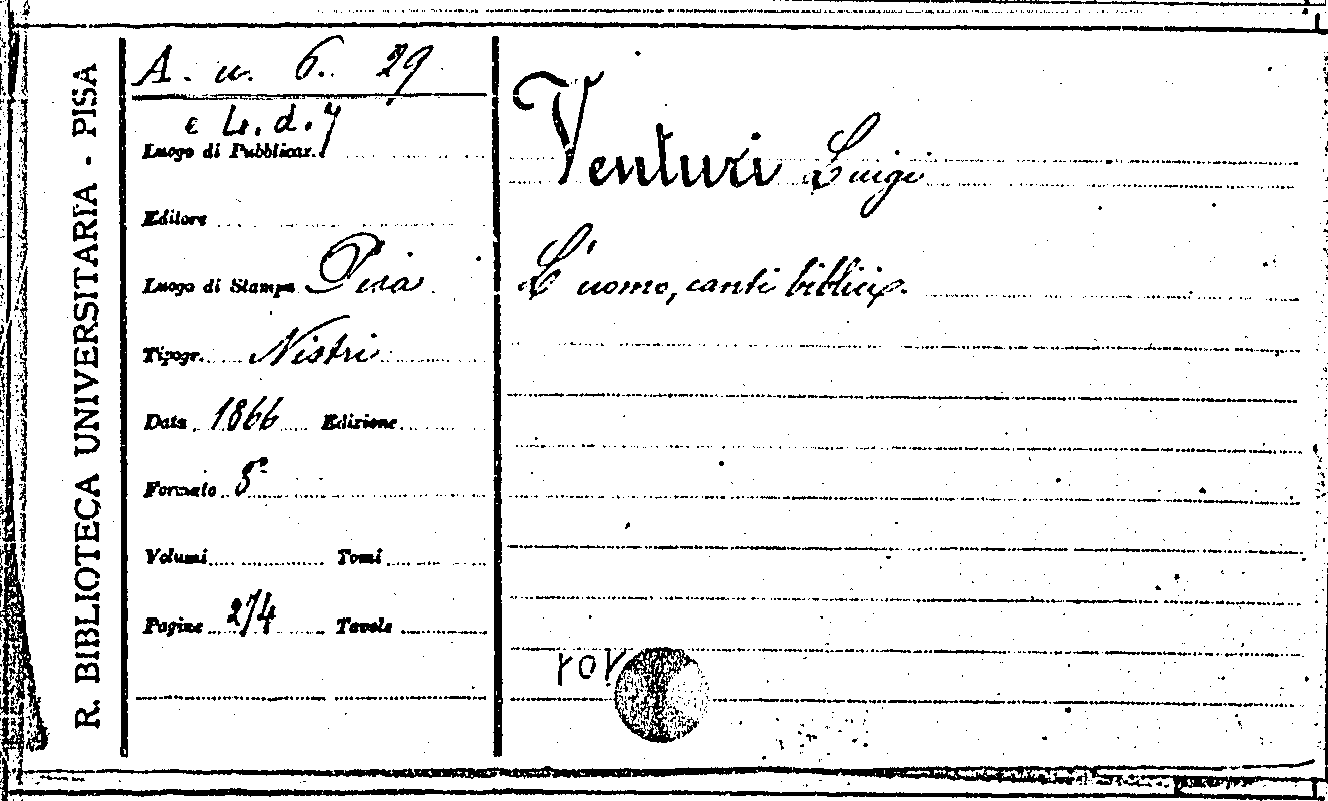 R. BIBLIOTECA UNIVERSITARIA - PISA
A. u. 6. 29
e Lr. d. 7
Luogo di Pubblicaz.
Editore
Luogo di Stampa Pisa
Tipogr. Nistri
Data 1866 Edizione
Formato 8°
Volumi Tomi
Pagine 274 Tavole
Venturi Luigi
L'uomo, canti biblici.